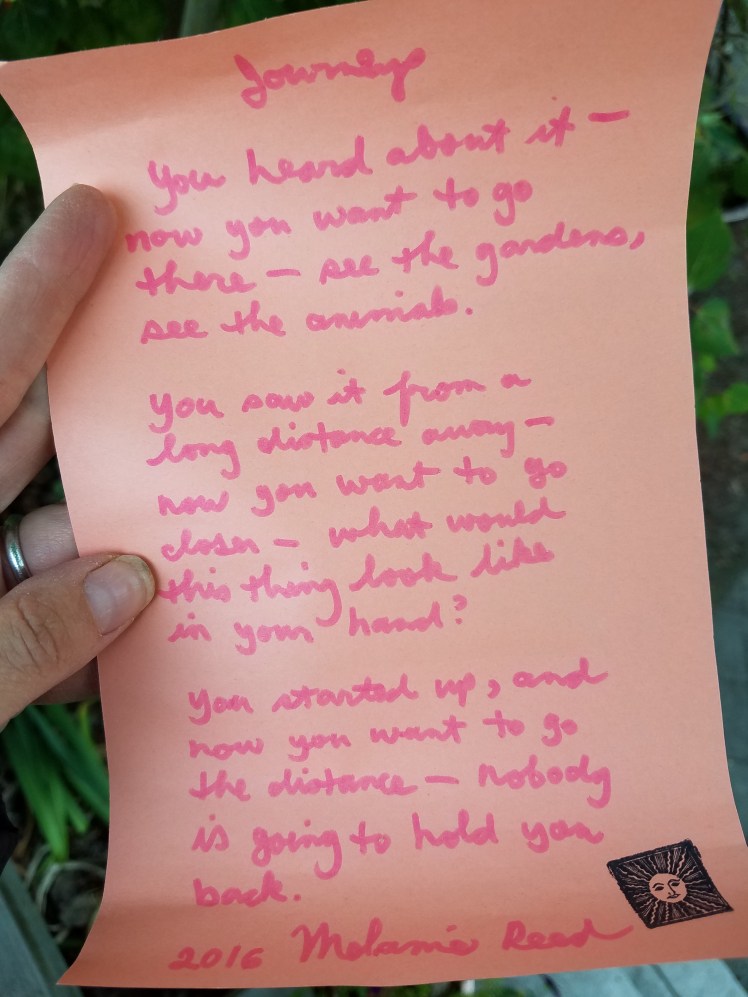 Journey
You heard about it —
now you want to go
there — see the gardens,
see the animals.
You saw it from a
long distance away —
now you want to go
closer — what would
this thing look like
in your hand?
You started up, and
now you want to go
the distance — nobody
is going to hold you
back.
2016 Melanie Reed